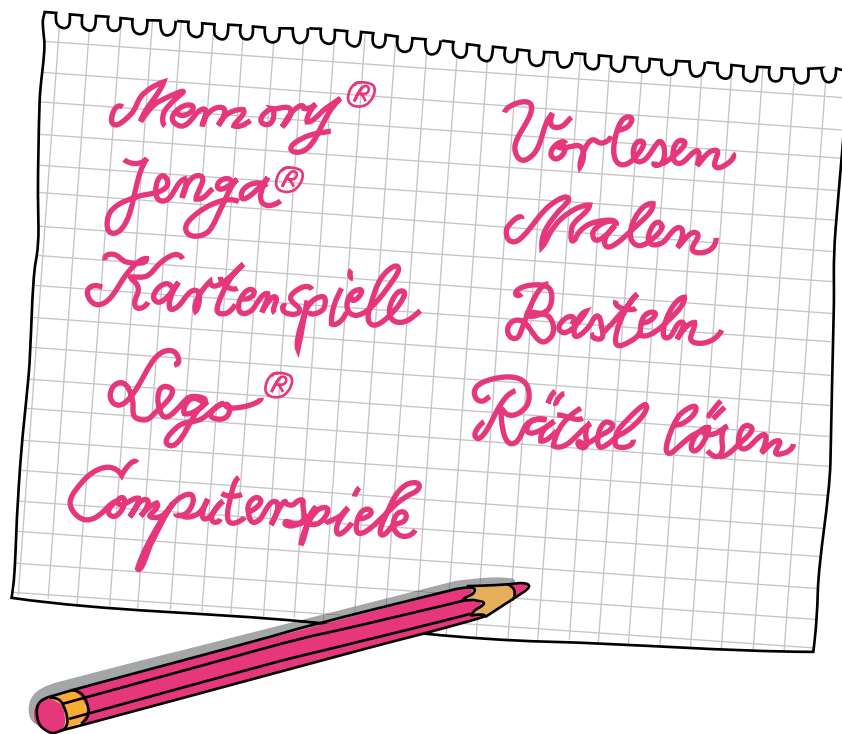 Memory®
Jenga®
Kartenspiele
Lego®
Computerspiele
Vorlesen
Malen
Basteln
Rätsel lösen